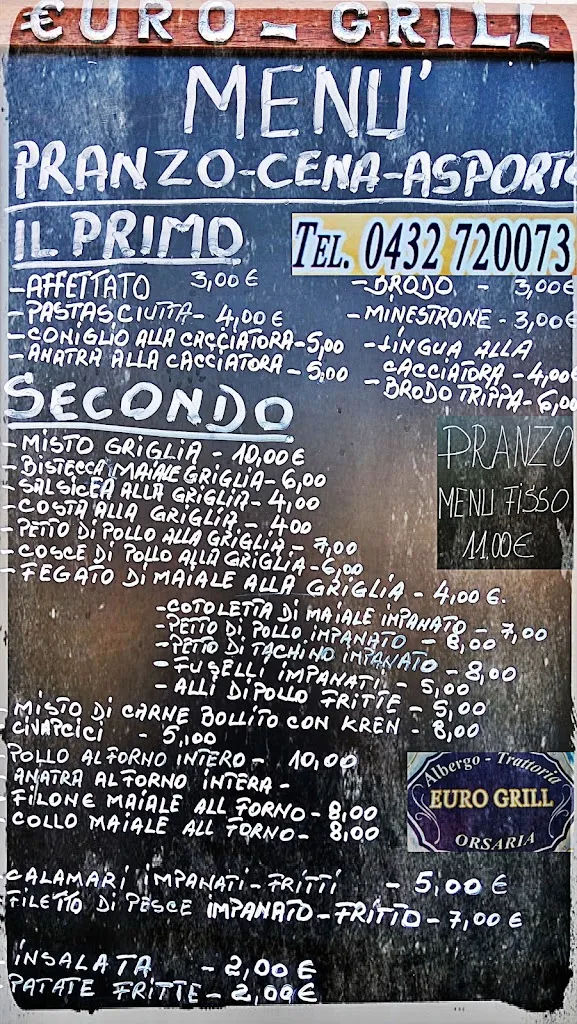 €URO - GRILL
MENU'
PRANZO-CENA-ASPORTO
IL PRIMO
TEL. 0432 720073
-AFFETTATO 3,00 €
-PASTASCIUTTA- 4,00 €
-CONIGLIO ALLA CACCIATORA-5,00
-ANATRA ALLA CACCIATORA - 5,00
-BRODO - 3,00€
-MINESTRONE - 3,00€
-LINGUA ALLA
CACCIATORA - 4,00€
-BRODO TRIPPA- 6,00
SECONDO
-MISTO GRIGLIA - 10,00 €
-BISTECCA MAIALE GRIGLIA- 6,00
-SALSICCA ALLA GRIGLIA- 4,00
-COSTA ALLA GRIGLIA - 400
-PETTO DI POLLO ALLA GRIGLIA - 7,00
-COSCE DI POLLO ALLA GRIGLIA- 6,00
-FEGATO DI MAIALE ALLA GRIGLIA - 4,00 €.
PRANZO
MENU FISSO
11.00€
-COTOLETTA DI MAIALE IMPANATO - 7,00
-PETTO DI POLLO IMPANATO - 8,00
-PETTO DI TACHINO IMPANATO - 8,00
-FUSELLI IMPANATI - 5,00
-ALLI DI POLLO FRITTE - 5,00
MISTO DI CARNE BOLLITO CON KREN - 8,00
CIVAPCICI - 5,00
POLLO AL FORNO INTERO - 10,00
ANATRA AL FORNO INTERA -
FILONE MAIALE ALL FORNO - 8,00
COLLO MAIALE ALL FORNO- 8,00
Albergo - Trattoria
EURO GRILL
ORSARIA
CALAMARI IMPANATI-FRITTI - 5,00 €
FILETTO DI PESCE IMPANATO-FRITTO - 7,00 €
INSALATA - 2,00 €
PATATE FRITTE - 2,00€